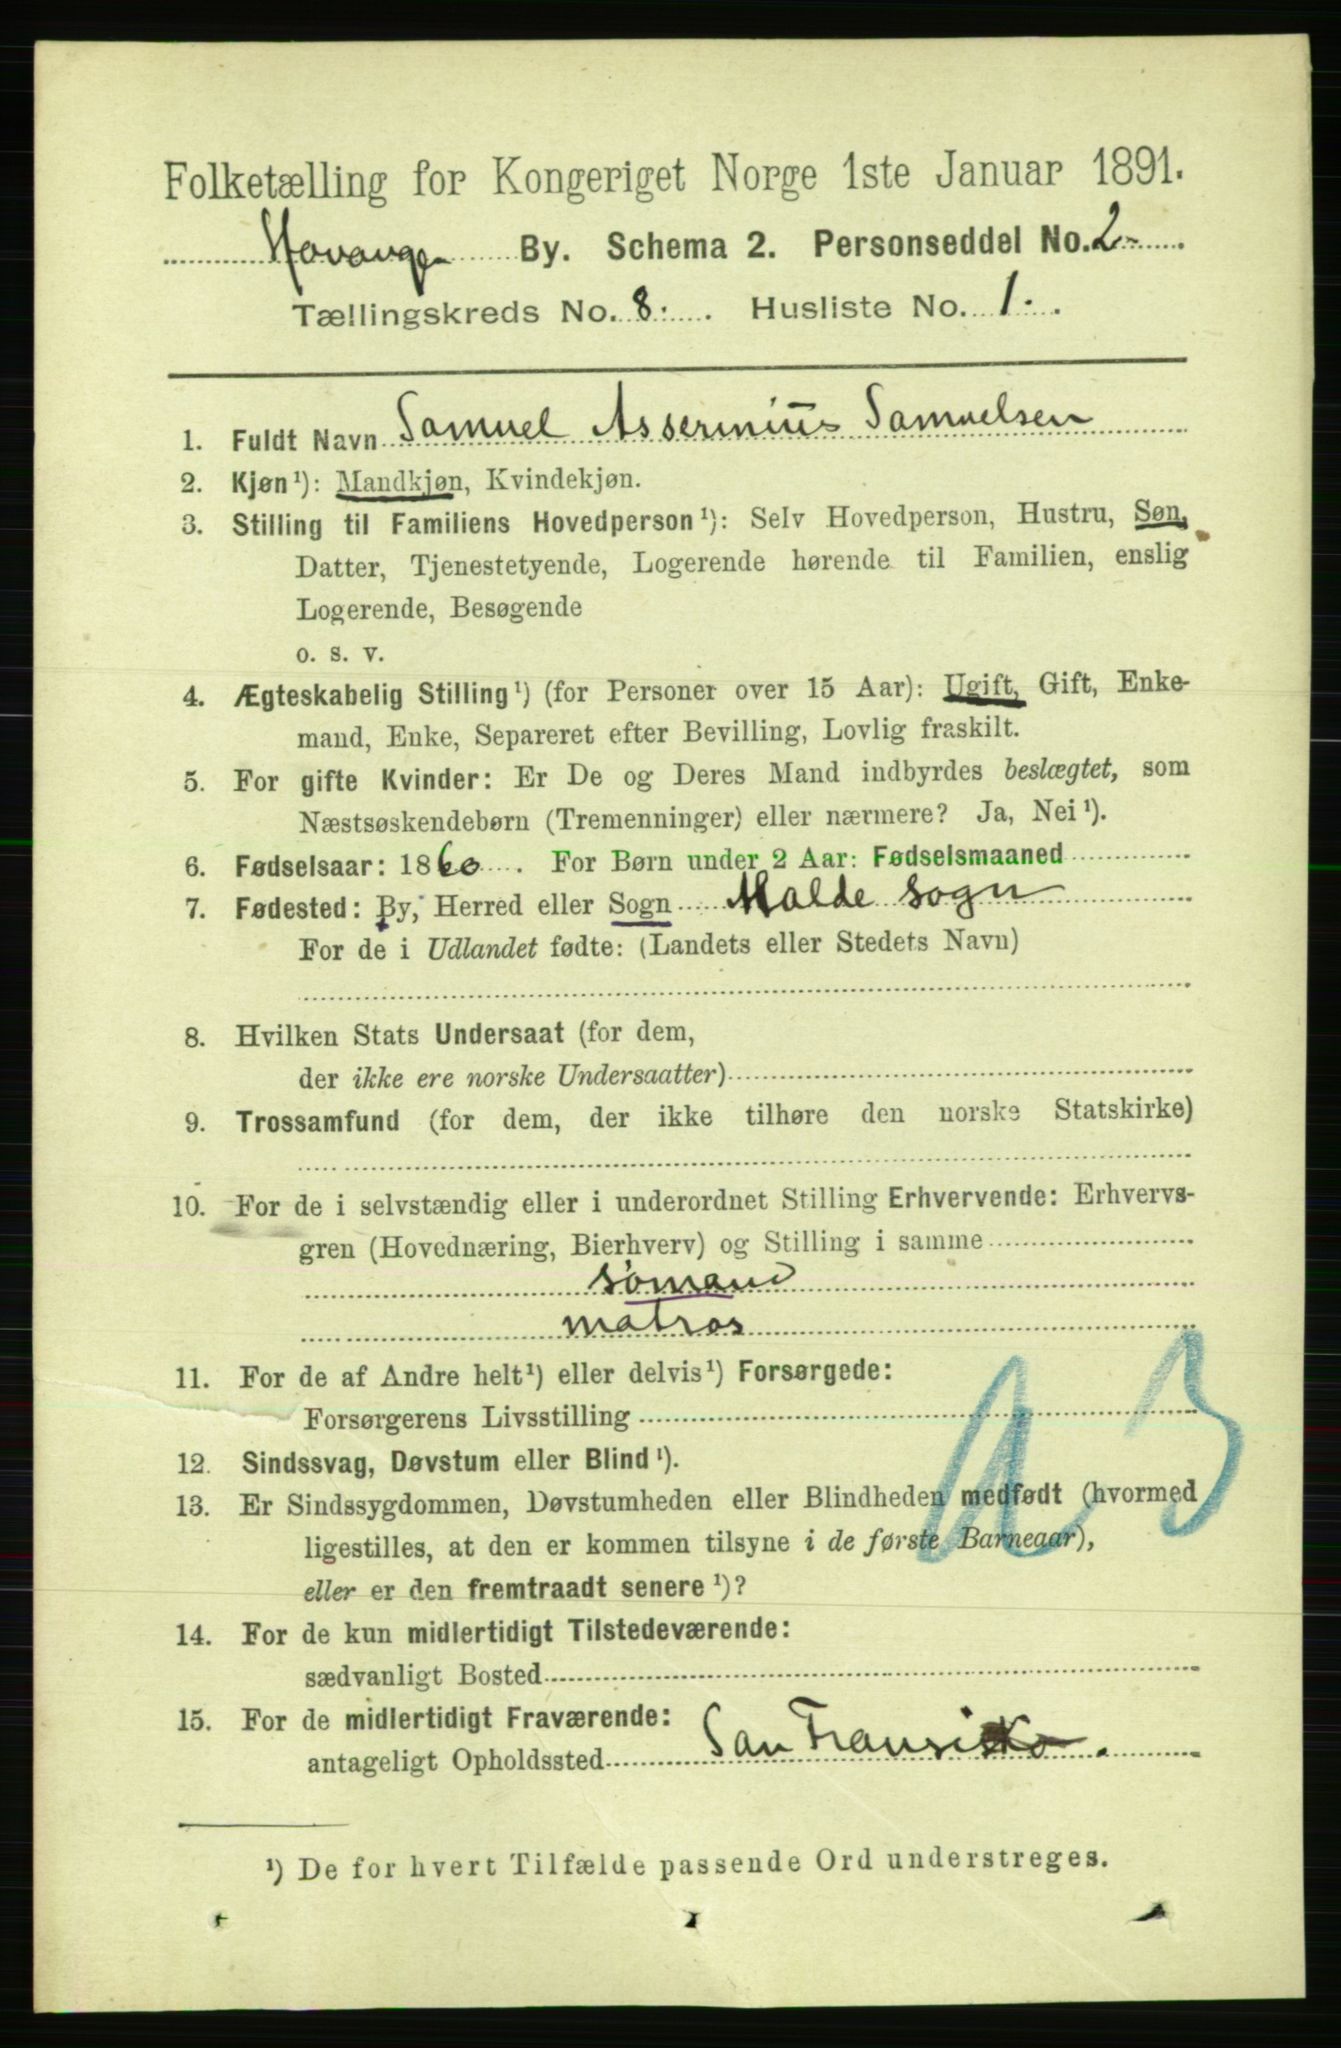 Folketælling for Kongeriget Norge 1ste Januar 1891.
Stavanger By. Schema 2. Personseddel No. 2-
Tællingskreds No. 8. Husliste No. 1.
1. Fuldt Navn Samuel Asserinius Samuelsen
2. Kjøn¹): Mandkjøn, Kvindekjøn.
3. Stilling til Familiens Hovedperson¹): Selv Hovedperson, Hustru, Søn,
Datter, Tjenestetyende, Logerende hørende til Familien, enslig
Logerende, Besøgende
o. s. v.
4. Ægteskabelig Stilling¹) (for Personer over 15 Aar): Ugift, Gift, Enke-
mand, Enke, Separeret efter Bevilling, Lovlig fraskilt.
5. For gifte Kvinder: Er De og Deres Mand indbyrdes beslægtet, som
Næstsøskendebørn (Tremenninger) eller nærmere? Ja, Nei¹).
6. Fødselsaar: 1860. For Børn under 2 Aar: Fødselsmaaned
7. Fødested: By, Herred eller Sogn Malde sogn
For de i Udlandet fødte: (Landets eller Stedets Navn)
8. Hvilken Stats Undersaat (for dem,
der ikke ere norske Undersaatter)
9. Trossamfund (for dem, der ikke tilhøre den norske Statskirke)
10. For de i selvstændig eller i underordnet Stilling Erhvervende: Erhvervs-
gren (Hovednæring, Bierhverv) og Stilling i samme
sømand
matros
11. For de af Andre helt¹) eller delvis¹) Forsørgede:
Forsørgerens Livsstilling
12. Sindssvag, Døvstum eller Blind¹).
13. Er Sindssygdommen, Døvstumheden eller Blindheden medfødt (hvormed
ligestilles, at den er kommen tilsyne i de første Barneaar),
eller er den fremtraadt senere¹)?
14. For de kun midlertidigt Tilstedeværende:
sædvanligt Bosted
15. For de midlertidigt Fraværende:
antageligt Opholdssted San Fransisko.
¹) De for hvert Tilfælde passende Ord understreges.